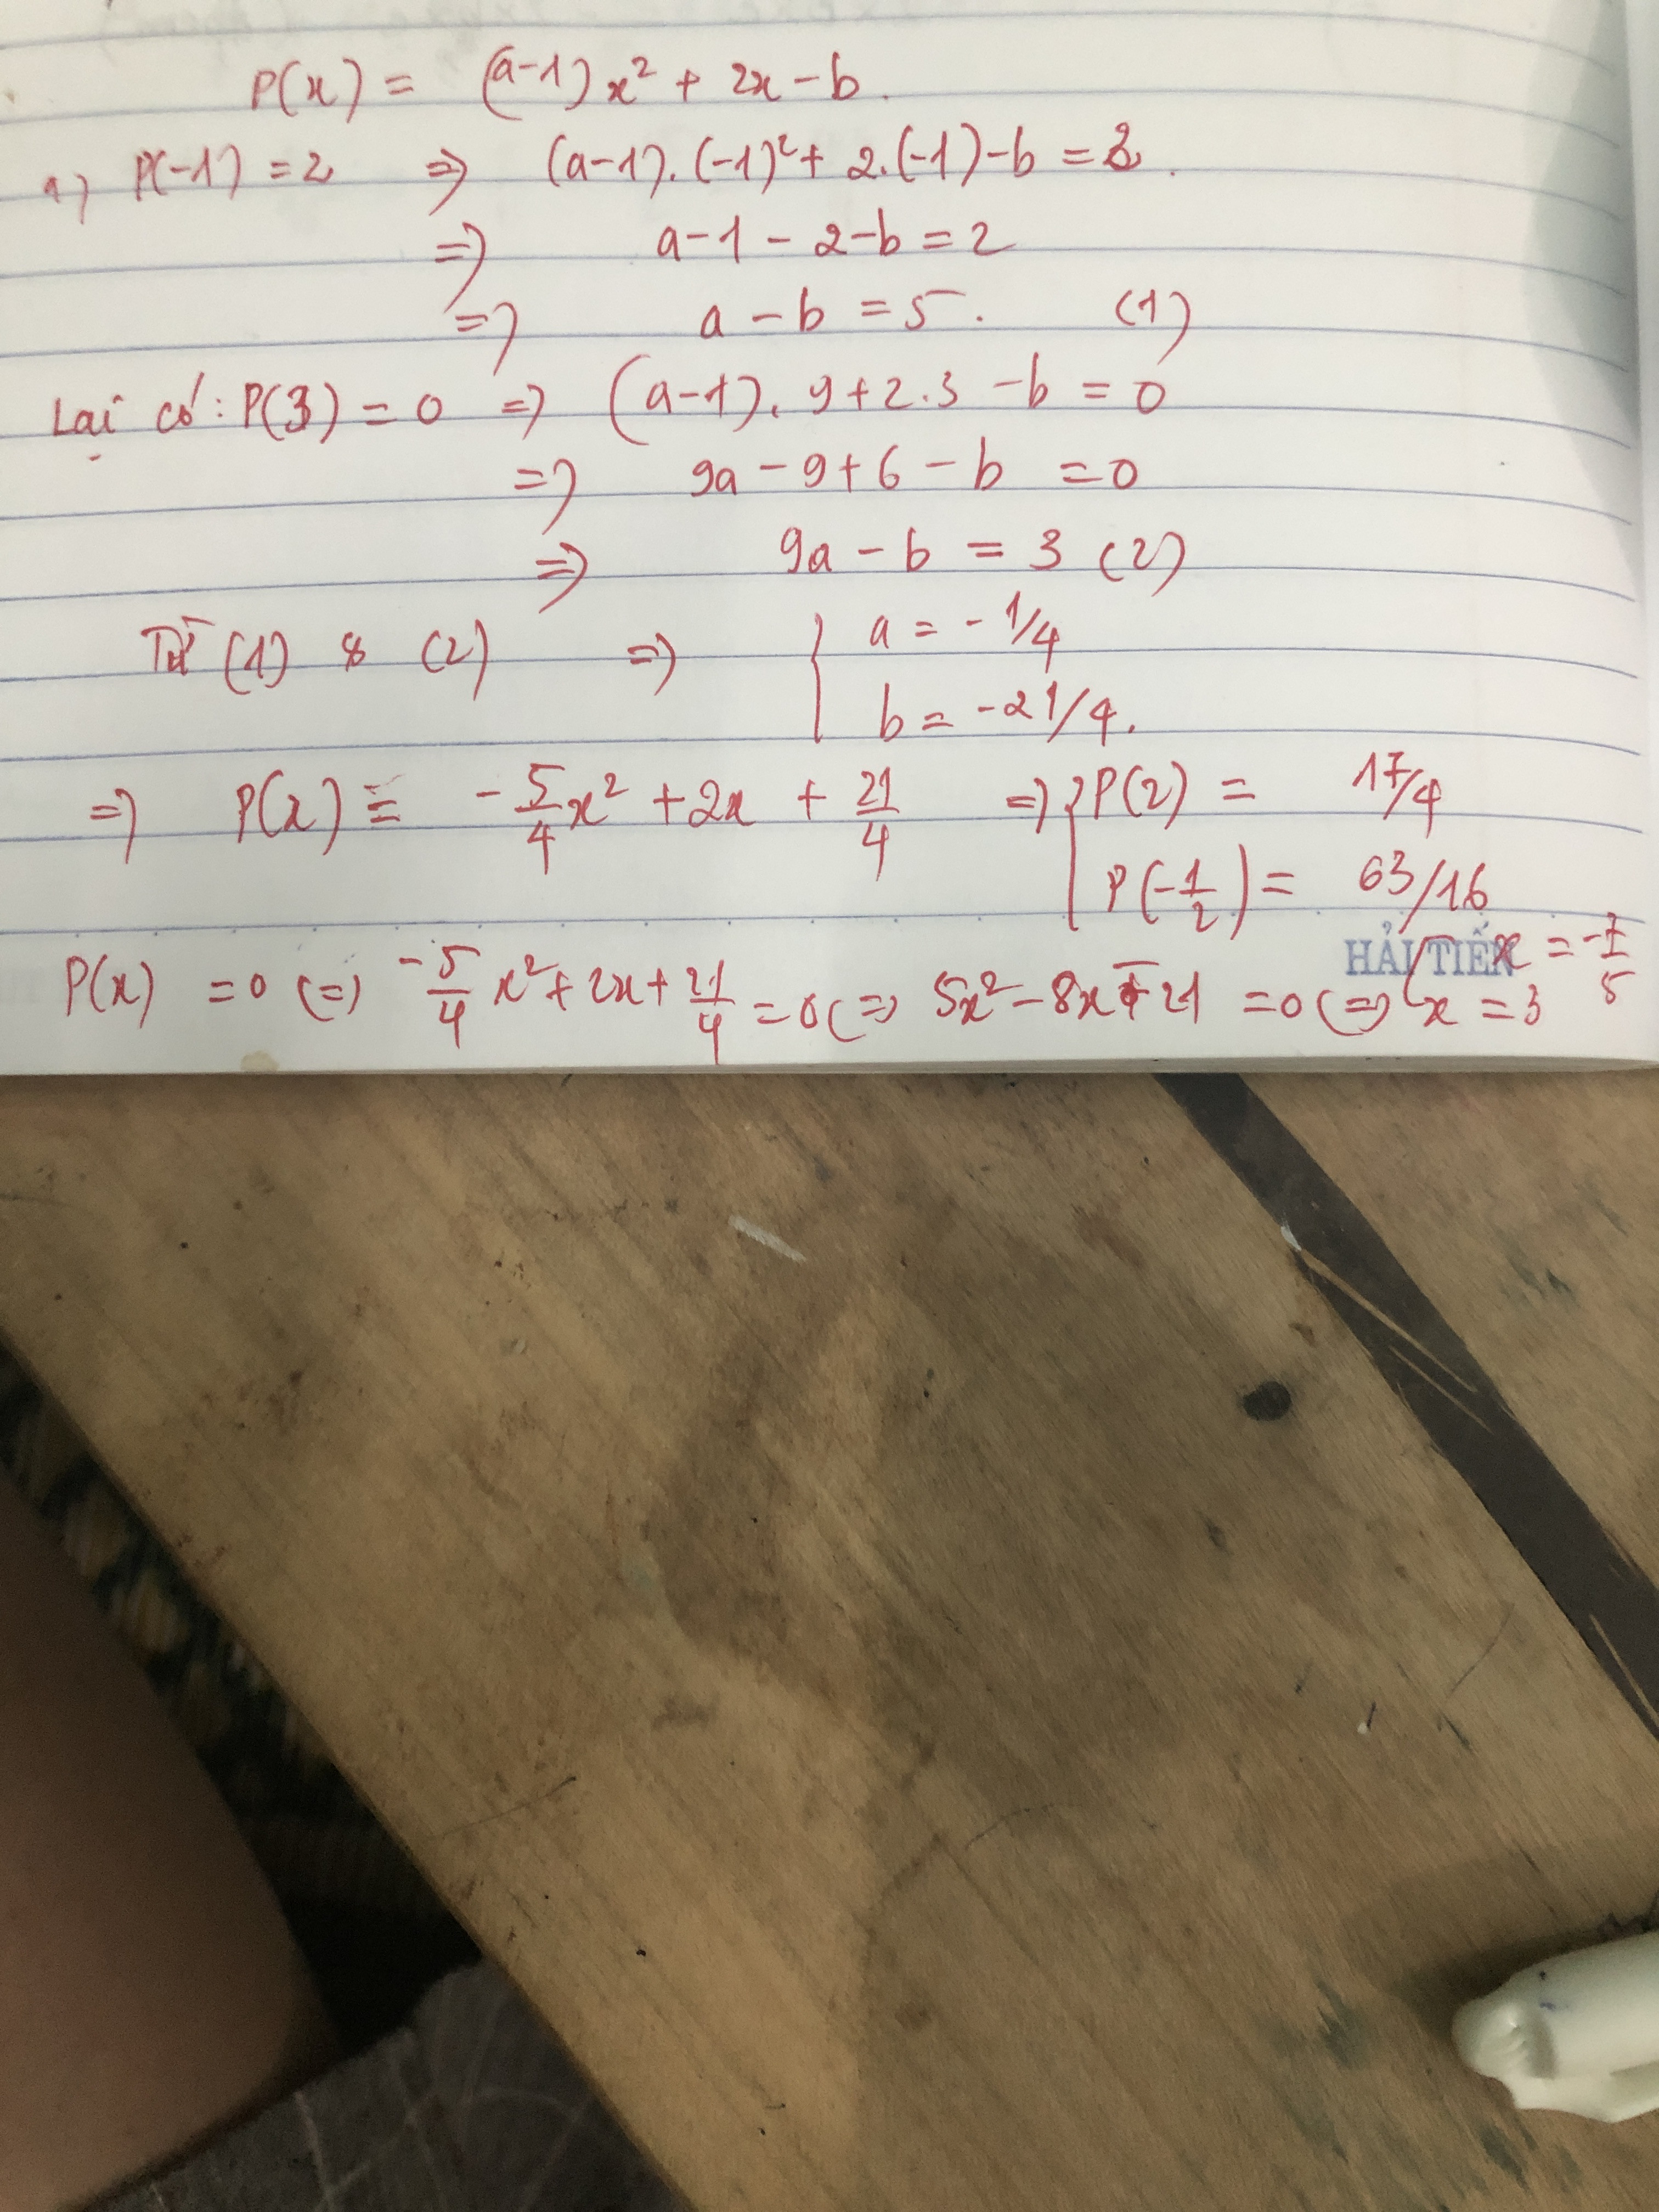 P(x) = (a-1)x² + 2x - b.
a) P(-1) = 2 => (a-1).(-1)² + 2.(-1) - b = 2.
=> a - 1 - 2 - b = 2
=> a - b = 5. (1)
Lại có: P(3) = 0 => (a-1). 9 + 2.3 - b = 0
=> 9a - 9 + 6 - b = 0
=> 9a - b = 3 (2)
Từ (1) & (2) => { a = - 1/4
b = -21/4.
=> P(x) = -5/4 x² + 2x + 21/4 => { P(2) = 17/4
P(-1/2) = 63/16
HẢI TIẾN
P(x) = 0 <=> -5/4 x² + 2x + 21/4 = 0 <=> 5x² - 8x - 21 = 0 <=> [ x = -7/5
x = 3